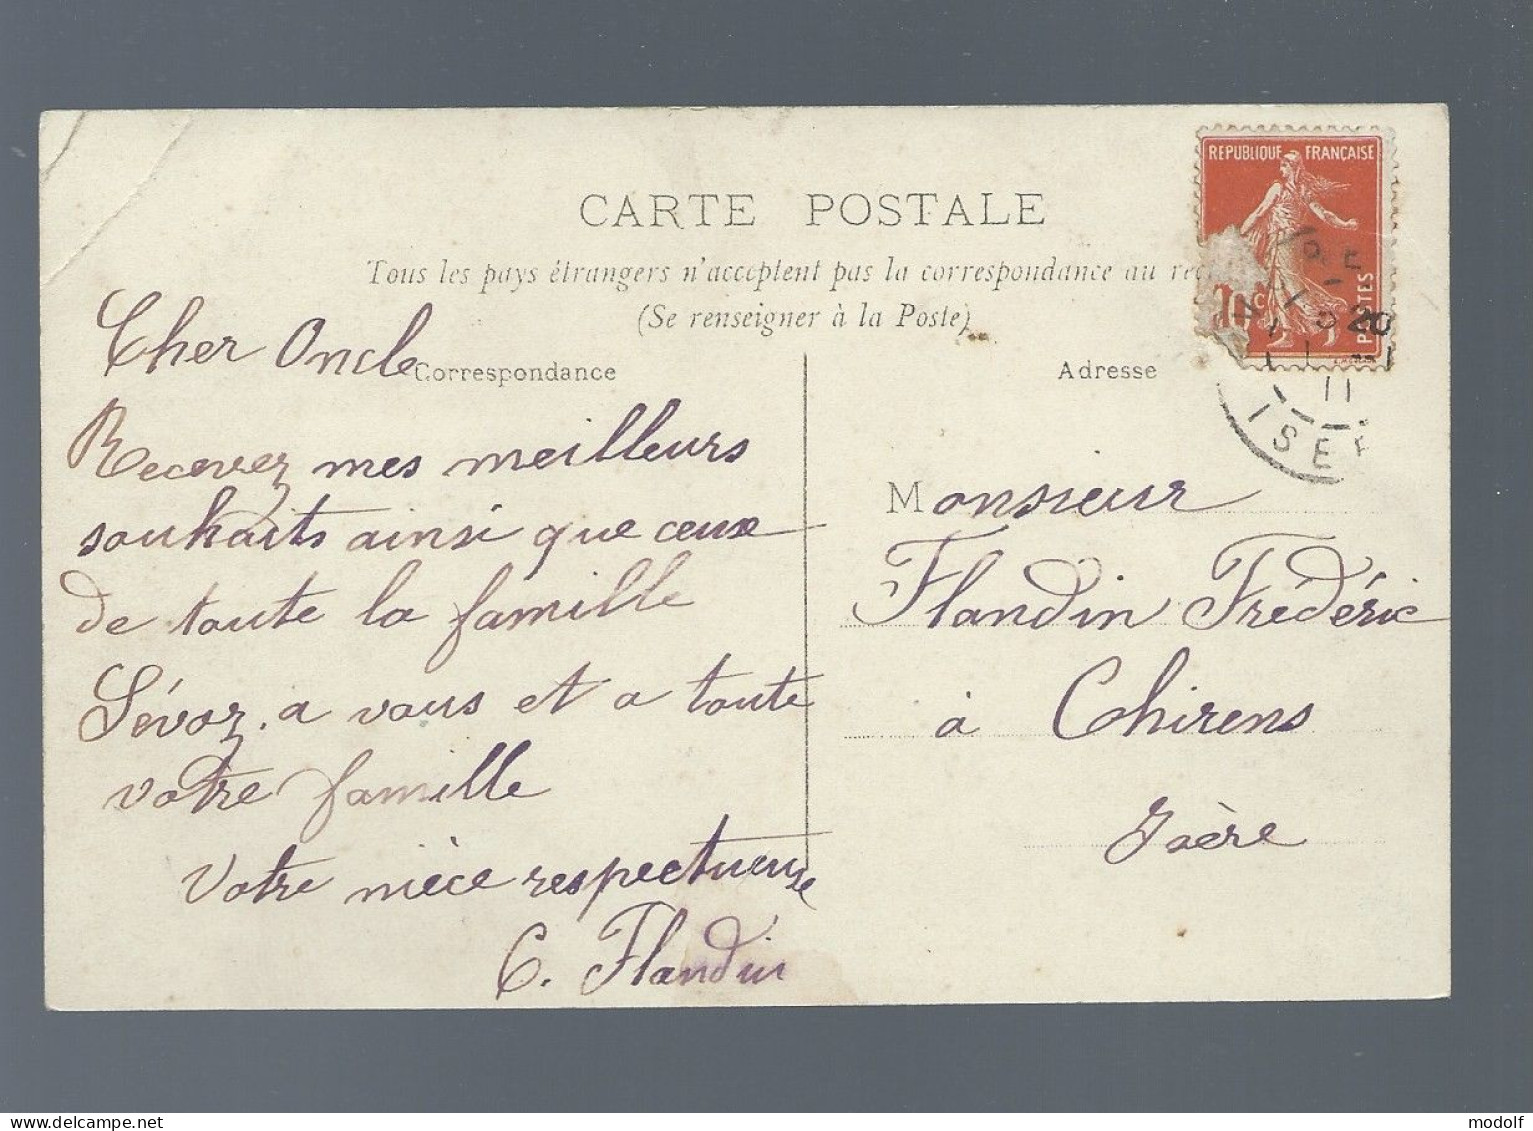 CARTE POSTALE
Tous les pays étrangers n'acceptent pas la correspondance au
(Se renseigner à la Poste)
Correspondance
Adresse
REPUBLIQUE FRANÇAISE
POSTES
20
11
ISE
Cher Oncle
Recevez mes meilleurs
souhaits ainsi que ceux
de toute la famille
Sévoz. a vous et a toute
votre famille
Votre nièce respectueuse
C. Flandin
Monsieur
Flandin Frédéric
à Chirens
Isère
delcampe.net
modolf